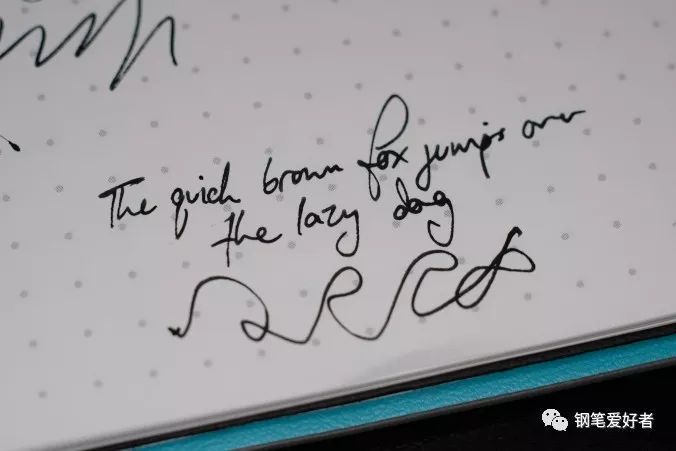 The quick brown fox jumps over
the lazy dog
钢笔爱好者